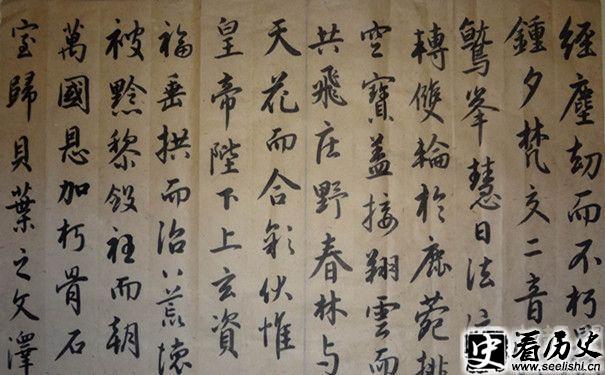 經塵劫而不朽
鍾夕梵交二音
鷲峯慧日法流
轉雙輪於鹿菀排
空寶蓋接翔雲而
共飛庄野春林与
天花而合彩伏惟
皇帝陛下上玄資
福垂拱而治八荒德
被黔黎斂衽而朝
萬國恩加朽骨石
室歸貝葉之文澤
史 看历史
www.seelishi.cn